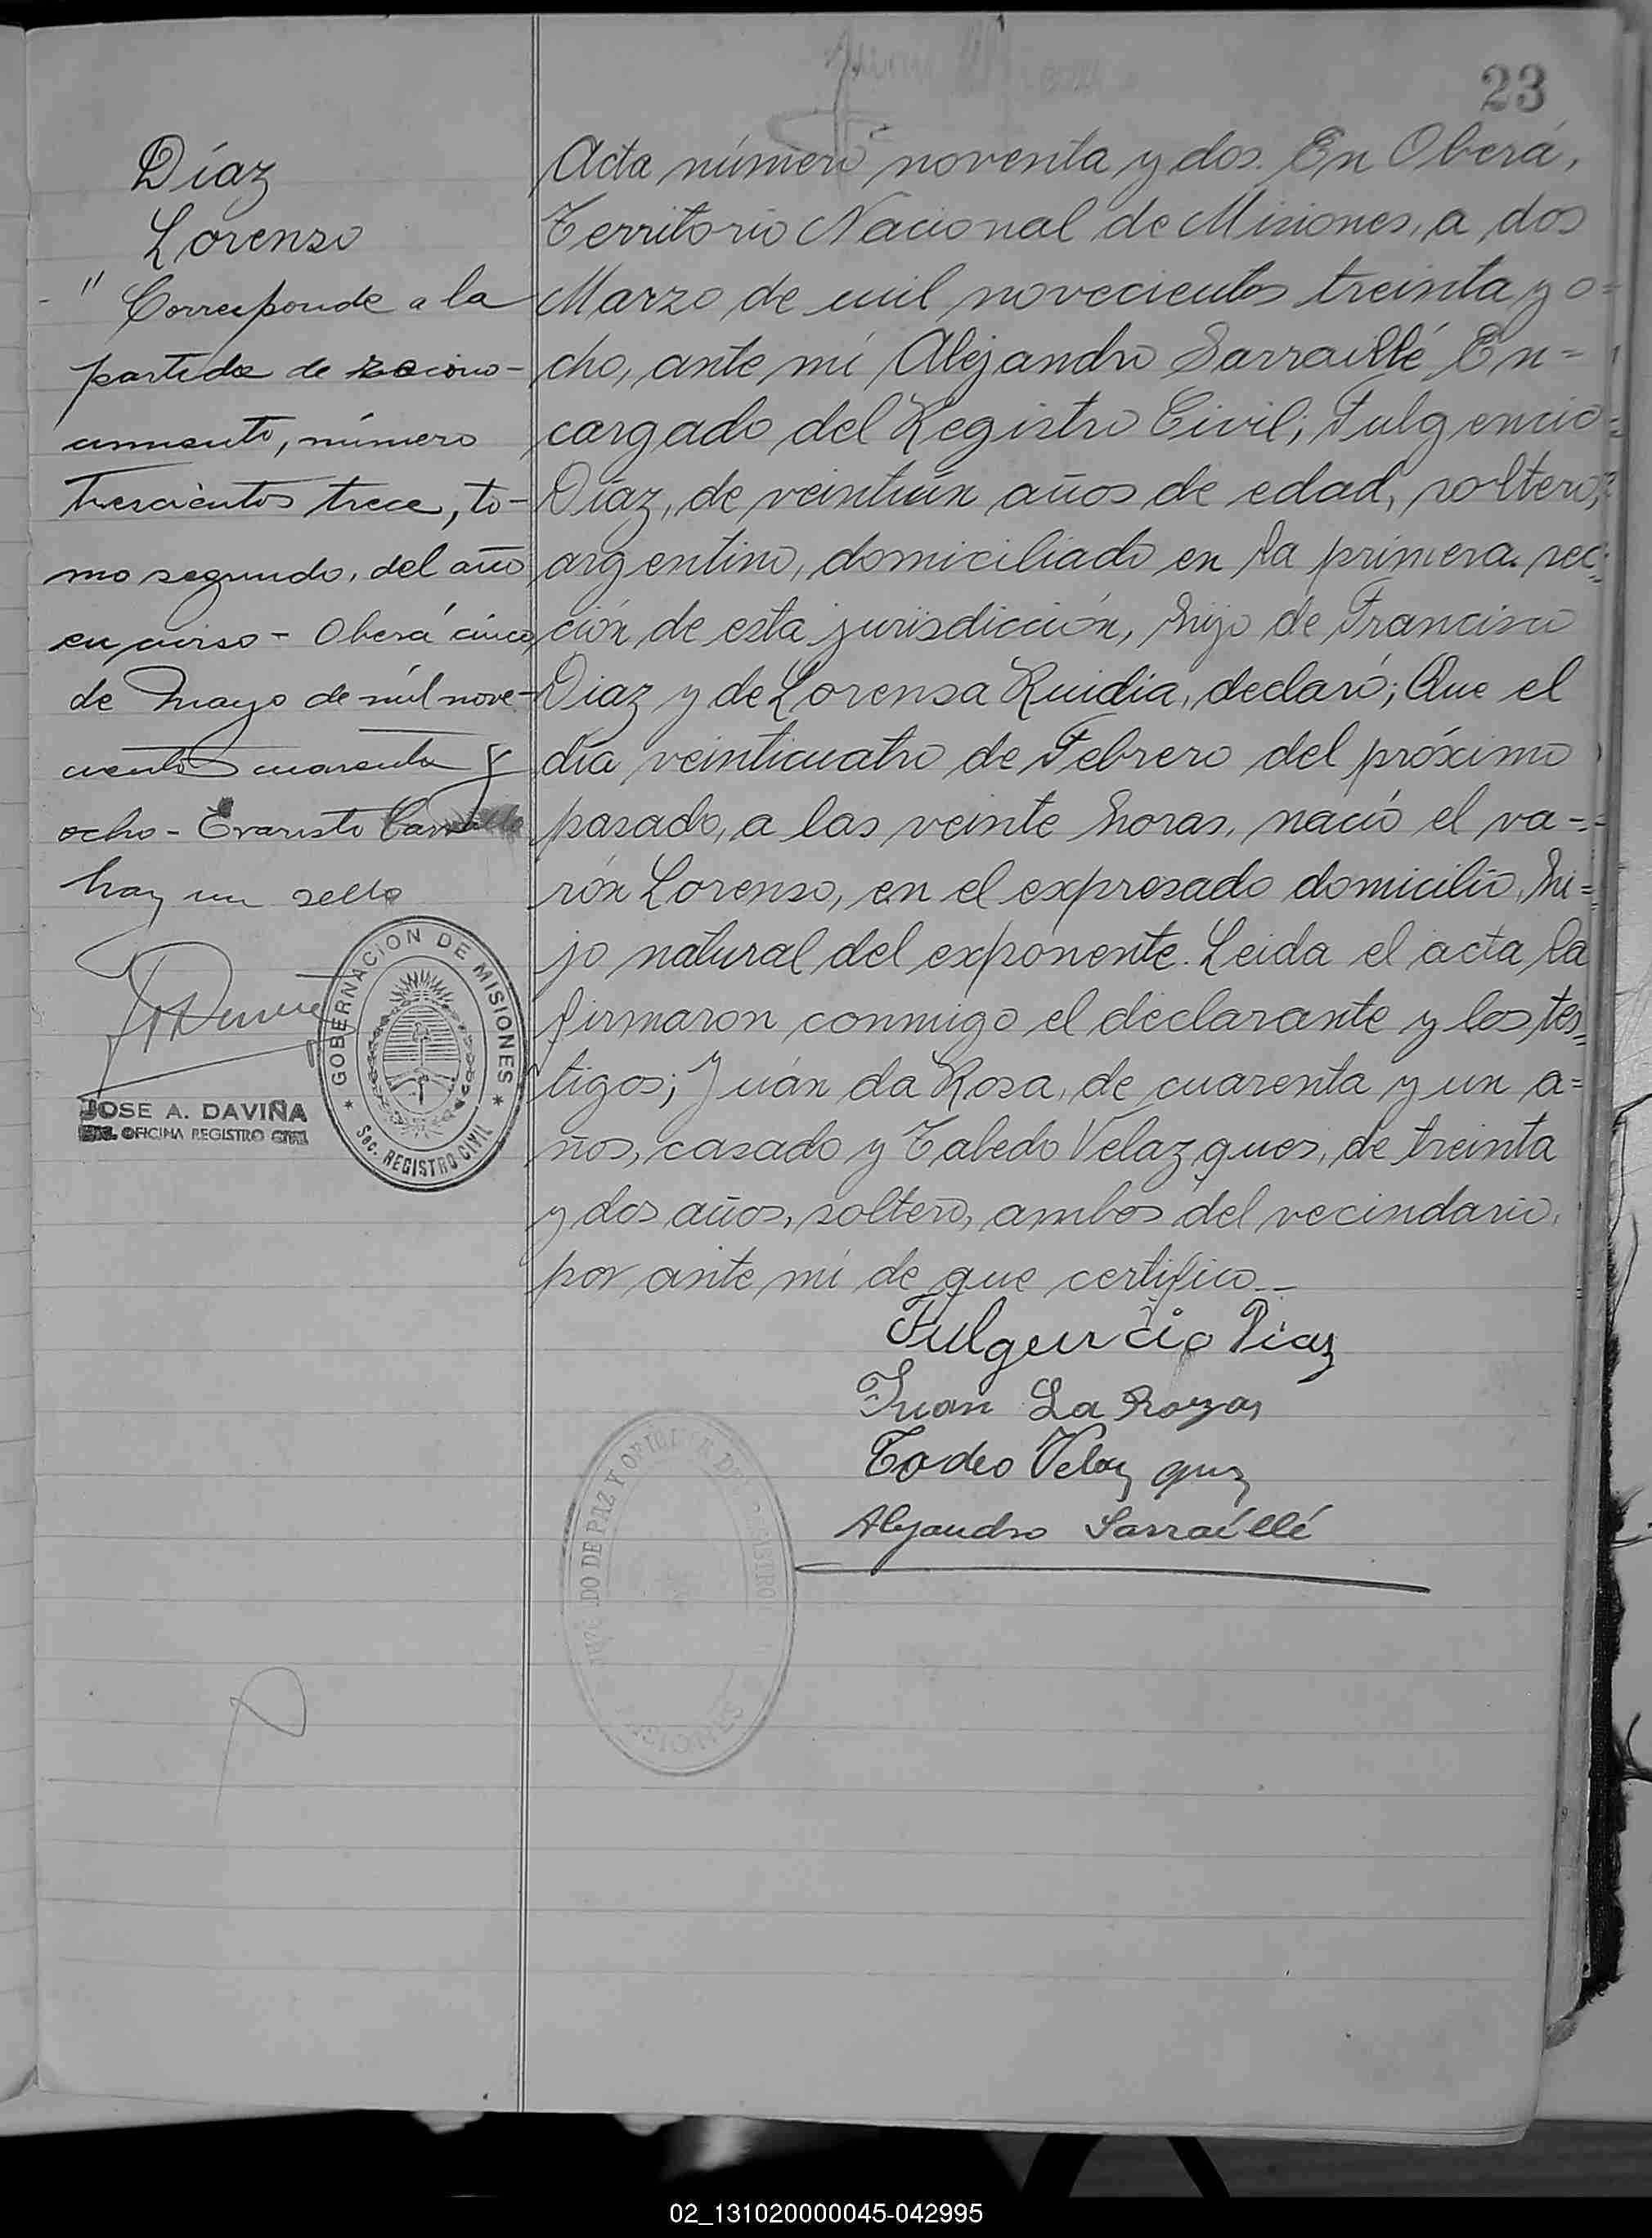 23
Díaz
Lorenso
-"Corresponde a la
partida de recono-
cimiento, número
trescientos trece, to-
mo segundo, del año
en curso - Oberá cinco
de Mayo de mil nove-
cientos cuarenta y
ocho - Evaristo
hay un sello
JOSE A. DAVIÑA
OFICINA REGISTRO CIVIL
GOBERNACION DE MISIONES
Sec. REGISTRO CIVIL
Acta número noventa y dos. En Oberá,
Territorio Nacional de Misiones, a dos
Marzo de mil novecientos treinta y o=
cho, ante mí Alejandro Sarraillé En=
cargado del Registro Civil; Fulgencio=
Díaz, de veintiún años de edad, soltero,
argentino, domiciliado en la primera sec=
ción de esta jurisdicción, hijo de Francisco
Diaz y de Lorensa Ruidia, declaró; Que el
día veinticuatro de Febrero del próximo
pasado, a las veinte horas, nació el va-=
rón Lorenso, en el expresado domicilio, hi=
jo natural del exponente. Leida el acta la
firmaron conmigo el declarante y los tes=
tigos; Juán da Rosa, de cuarenta y un a=
ños, casado y Tabedo Velazques, de treinta
y dos años, soltero, ambos del vecindario,
por ante mí de que certifico.-
Fulgencio Diaz
Juan La Rosa
Tadeo Velazquz
Alejandro Sarraíllé
DO DE PAZ Y OFICINA DE
MISIONES
02_131020000045-042995